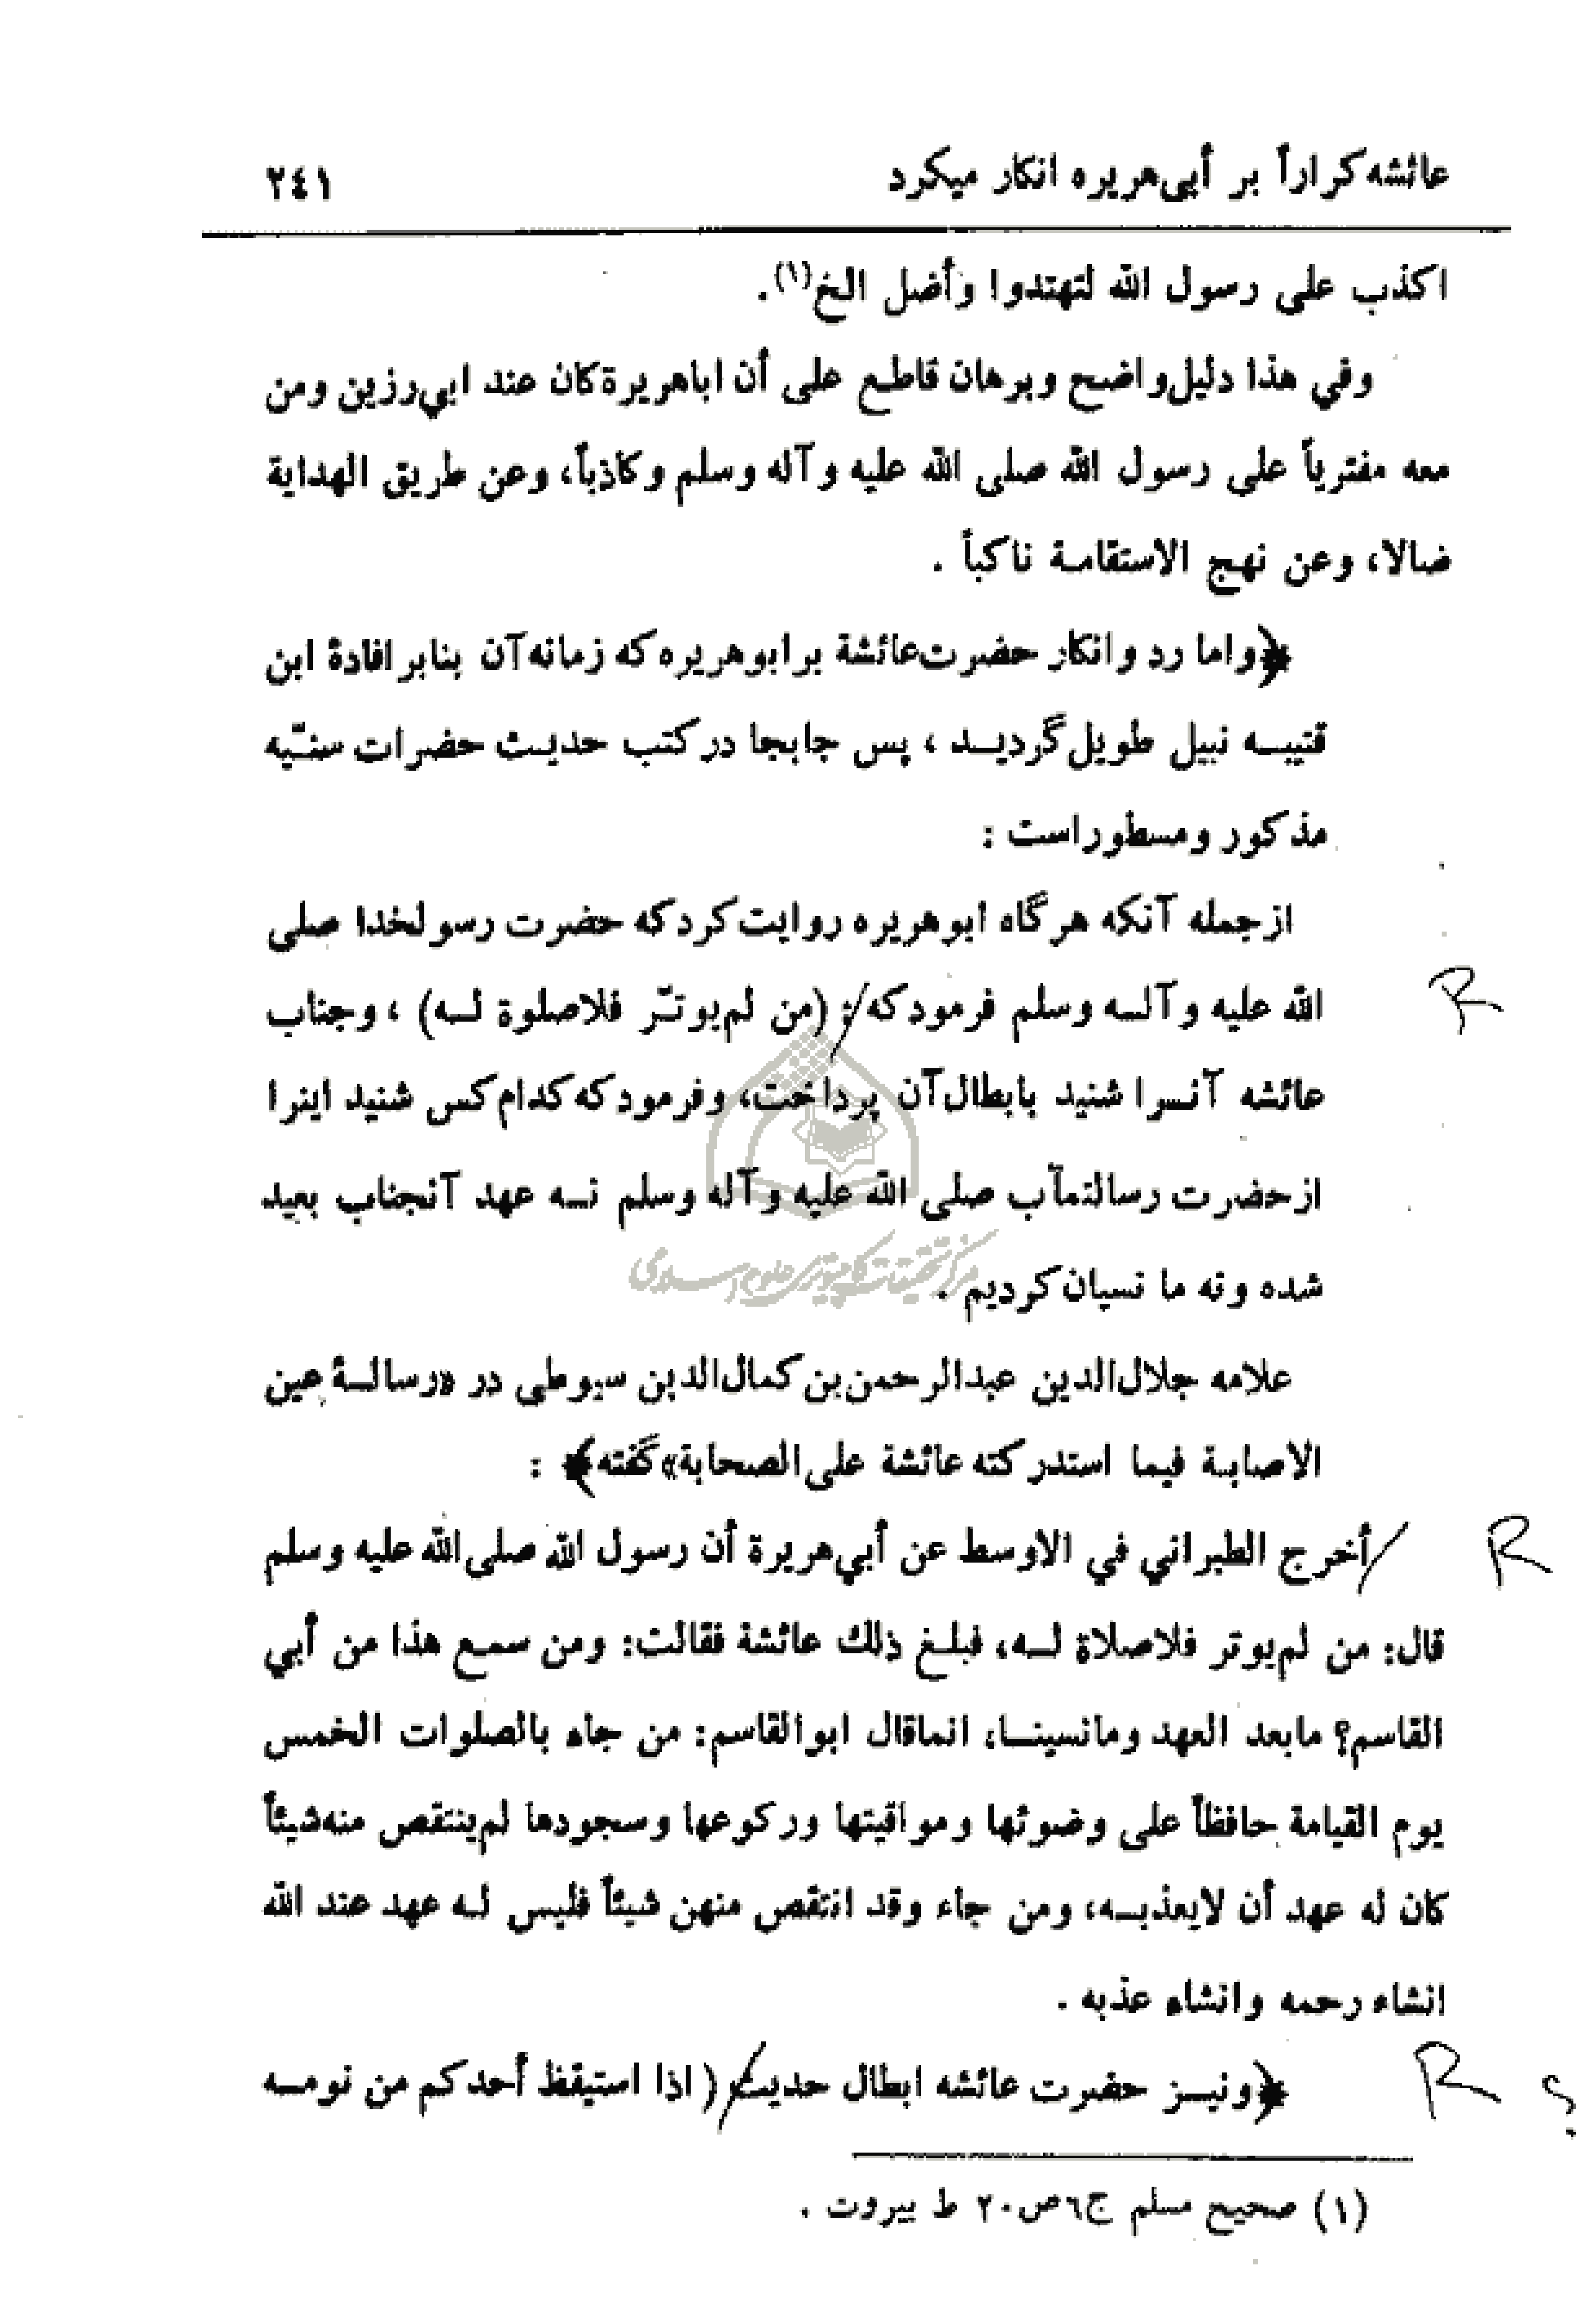 عائشه کراراً بر أبی‌هریره انکار میکرد
٢٤١
اکذب علی رسول الله لتهتدوا وأضل الخ(١).
وفي هذا دلیل واضح وبرهان قاطع علی أن اباهریرة کان عند ابي‌رزین ومن
معه مفتریاً علی رسول الله صلی الله علیه وآله وسلم وکاذباً، وعن طریق الهدایة
ضالا، وعن نهج الاستقامة ناکباً .
﴿واما رد وانکار حضرت عائشة بر ابوهریره که زمانه آن بنابر افادهٔ ابن
قتیبه نبیل طویل گردید ، پس جابجا در کتب حدیث حضرات سنّیه
مذکور ومسطور است :
از جمله آنکه هرگاه ابوهریره روایت کرد که حضرت رسولخدا صلی
الله علیه وآله وسلم فرمود که : (من لم‌یوتّر فلاصلوة له) ، وجناب
عائشه آنرا شنید بابطال آن پرداخت، وفرمود که کدام کس شنید اینرا
از حضرت رسالتمآب صلی الله علیه وآله وسلم نه عهد آنجناب بعید
شده ونه ما نسیان کردیم .
مرکز تحقیقات کامپیوتری علوم اسلامی
علامه جلال‌الدین عبدالرحمن‌بن کمال‌الدین سیوطی در «رسالهٔ عین
الاصابة فیما استدرکته عائشة علی‌الصحابة» گفته﴾ :
أخرج الطبراني في الاوسط عن أبي‌هریرة أن رسول الله صلی‌الله علیه وسلم
قال: من لم‌یوتر فلاصلاة له، فبلغ ذلك عائشة فقالت: ومن سمع هذا من أبي
القاسم؟ مابعد العهد ومانسینا، انماقال ابوالقاسم: من جاء بالصلوات الخمس
یوم القیامة حافظاً علی وضوئها ومواقیتها ورکوعها وسجودها لم‌ینتقص منه‌شیئاً
کان له عهد أن لایعذبه، ومن جاء وقد انتقص منهن شیئاً فلیس له عهد عند الله
انشاء رحمه وانشاء عذبه .
﴿ونیز حضرت عائشه ابطال حدیث ( اذا استیقظ أحدکم من نومه
(١) صحیح مسلم ج٦ص٢٠ ط بیروت .
R
R
R ؟